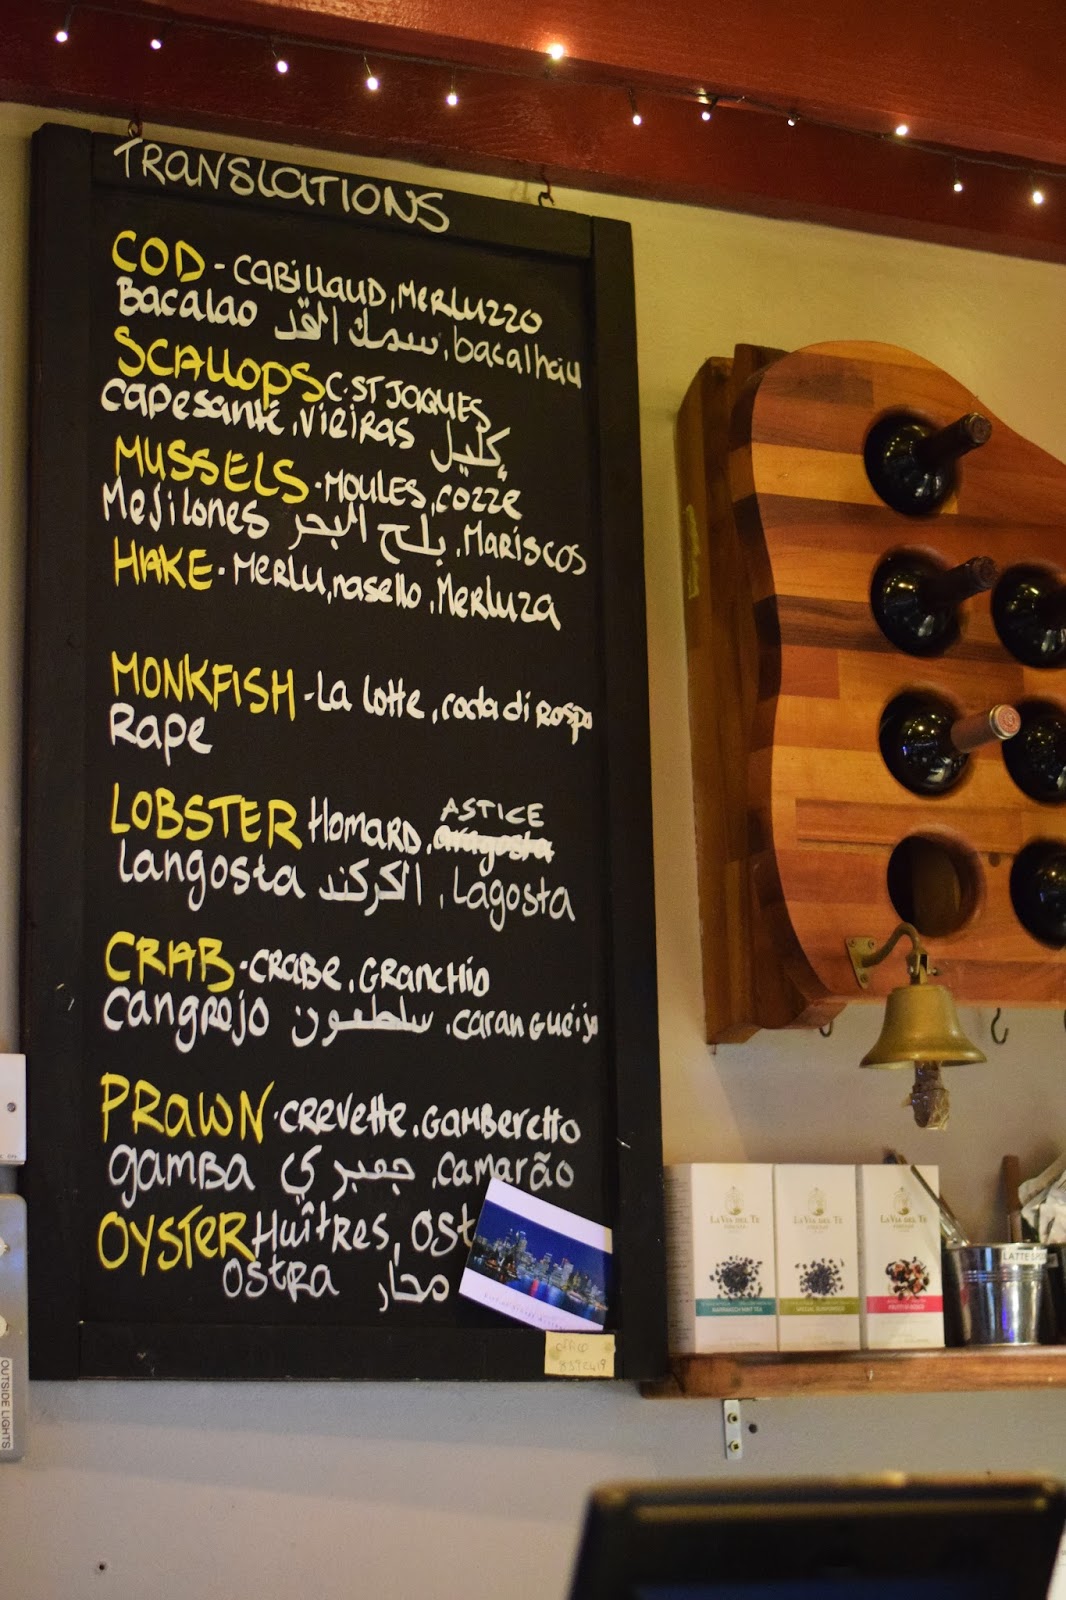 TRANSLATIONS
COD - CABILLAUD, MERLUZZO
BACALAO سمك القد, bacalhau
SCALLOPS C. ST JAQUES
CAPESANTE, VIEIRAS
MUSSELS - MOULES, COZZE
MEJILONES بلح البحر, MARISCOS
HAKE - MERLU, nasello, MERLUZA
MONKFISH - LA lotte, coda di ROSPO
RAPE
ASTICE
LOBSTER HOMARD, aragosta
Langosta الكركند, LAGOSTA
CRAB - CRABE, GRANCHIO
CANGREJO سلطعون, CARANGUEIJO
PRAWN - CREVETTE, GAMBERETTO
GAMBA جمبري, CAMARÃO
OYSTER HUÎTRES, OST
OSTRA محار
8392419
LA VIA DEL TÈ
LA VIA DEL TÈ
LA VIA DEL TÈ
LATTE
OUTSIDE LIGHTS